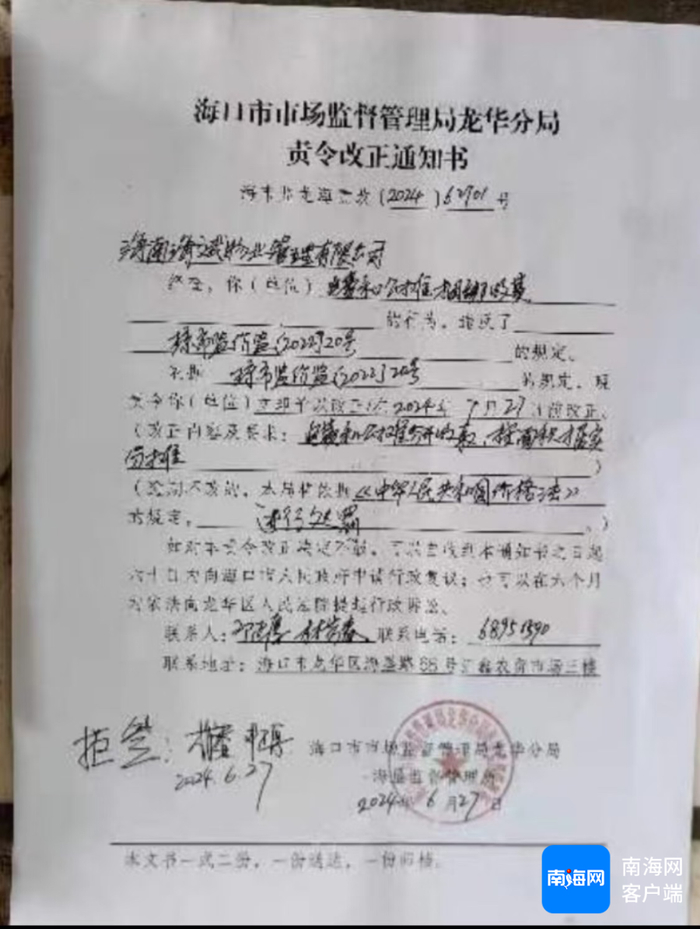 海口市市场监督管理局龙华分局
责令改正通知书
(2024)62901号
海南 物业管理有限公司
经查，你（单位） 电费和公摊 捆绑收费
的行为，违反了
琼市监价监〔2022〕20号 的规定。
依据 琼市监价监〔2022〕20号 的规定，现
责令你（单位） 2024年7月27日前改正。
（改正内容及要求：电费和公摊分开收取，按面积 据实
分摊 ）
（逾期不改的，本局将依据《中华人民共和国价格法》
的规定， 进行处罚 。）
如对本责令改正决定不服，可以自收到本通知书之日起
六十日内向海口市人民政府申请行政复议；也可以在六个月
内依法向龙华区人民法院提起行政诉讼。
联系人： 联系电话：68951390
联系地址：海口市龙华区海垦路68号 农贸市场三楼
拒签：
2024.6.27
海口市市场监督管理局龙华分局
海垦监督管理所
2024年6月27日
本文书一式二份，一份送达，一份归档。
南海网
南海网
客户端